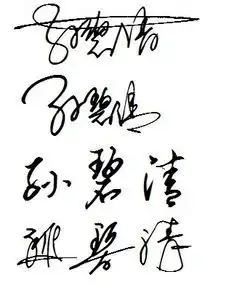 孙碧清
孙碧清
孙碧清
孙碧清